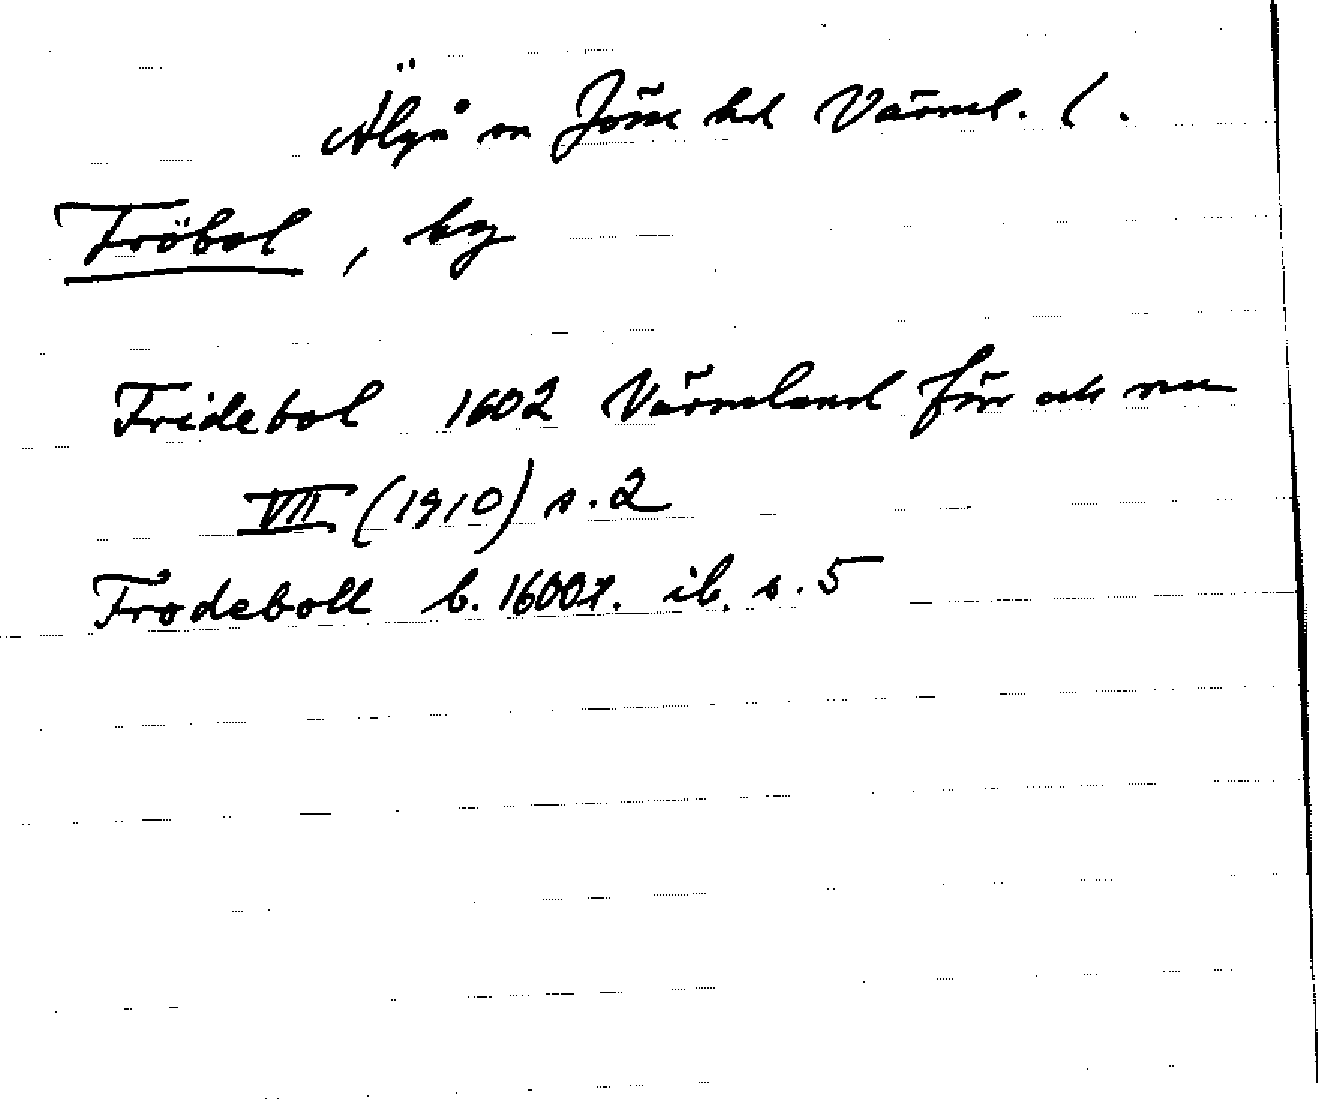 Älgå sn Jösse hd Värml. l.
Fröbol, by
Fridebol 1602 Värmland förr och nu
VII (1910) s. 2
Frodeboll b. 1600t. ib. s. 5